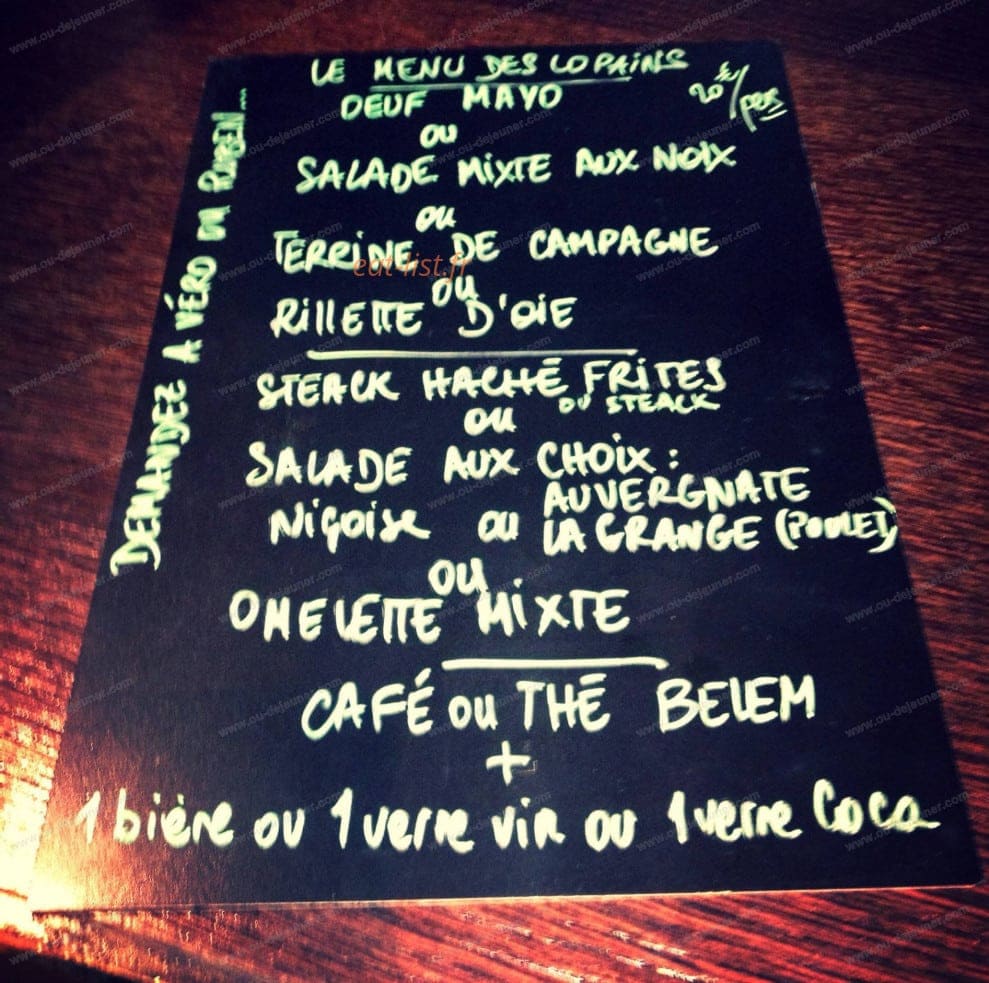 LE MENU DES COPAINS
20€/pers
OEUF MAYO
OU
SALADE MIXTE AUX NOIX
OU
TERRINE DE CAMPAGNE
eat-list.fr
OU
RillETTE D'OIE
STEACK HACHÉ FRITES
OU STEACK
OU
SALADE AUX CHOIX :
AUVERGNATE
Niçoise ou LA GRANGE (POULET)
OU
OMELETTE MIXTE
CAFÉ ou THÉ BELEM
+
1 bière ou 1 verre vin ou 1 verre Coca
DEMANDEZ A VÉRO OU RUBEN...
www.ou-dejeuner.com